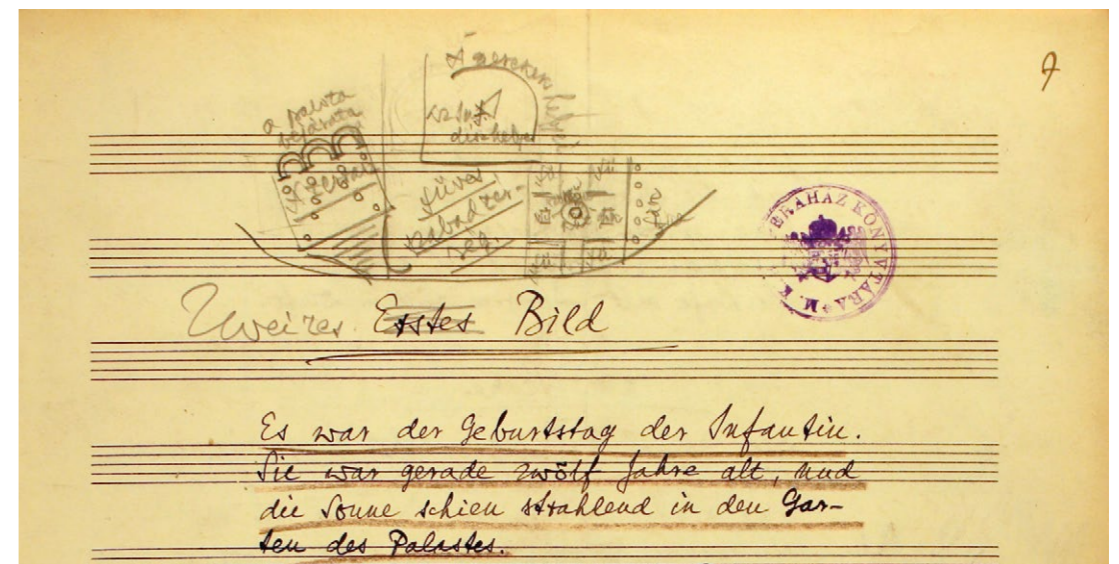 9
a palota
bejárata
A gyerekek helye
füves
szabad tér-
ség.
OPERAHÁZ KÖNYVTÁRA * M. K.
Zweites Erstes Bild
Es war der Geburtstag der Infantin.
Sie war gerade zwölf Jahre alt, und
die Sonne schien strahlend in den Gar-
ten des Palastes.